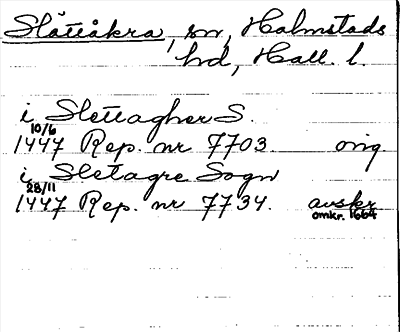 Slättåkra, sn, Halmstads
hd, Hall. l.
i Slettagher S.
10/6
1447 Rep. nr 7703. orig
i Sletagre Sogn
28/11
1447 Rep. nr 7734. avskr
omkr. 1664